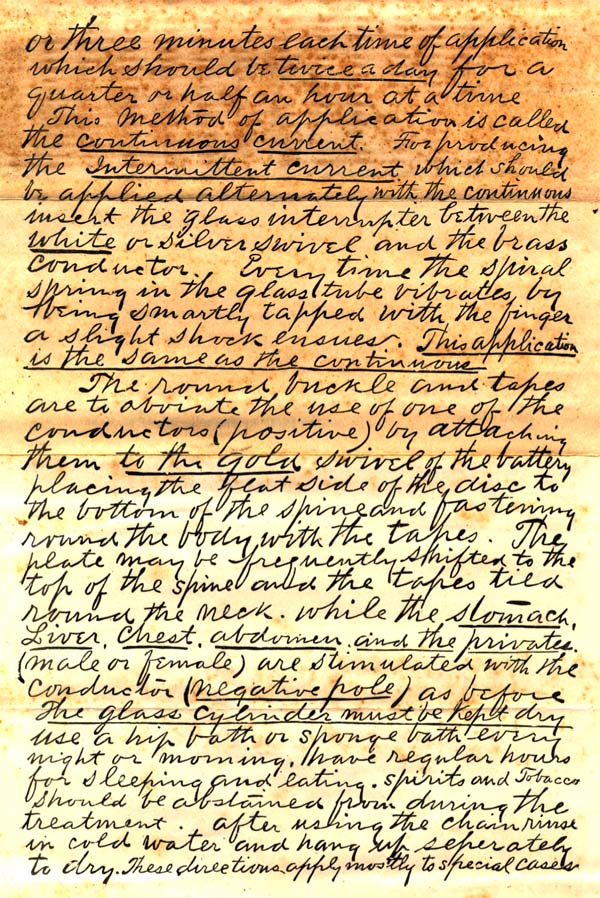 or three minutes each time of application
which should be twice a day for a
quarter or half an hour at a time
This method of application is called
the continuous current. For producing
the Intermittent current which should
be applied alternately with the continuous
insert the glass interrupter between the
white or silver swivel and the brass
conductor. Every time the spiral
spring in the glass tube vibrates, by
being smartly tapped with the finger
a slight shock ensues. This application
is the same as the continuous
The round buckle and tapes
are to aboiate the use of one of the
conductors (positive) by attaching
them to the gold swivel of the battery
placing the flat side of the disc to
the bottom of the spine and fastening
round the body with the tapes. The
plate may be frequently shifted to the
top of the spine and the tapes tied
round the neck. while the stomach,
Liver, Chest, abdomen and the privates.
(male or female) are stimulated with the
conductor (negative pole) as before
The glass cylinder must be kept dry
use a hip bath or sponge bath every
night or morning, have regular hours
for sleeping and eating. spirits and Tobacco
should be abstained from during the
treatment. after using the chain rinse
in cold water and hang up seperately
to dry. These directions apply mostly to special cases